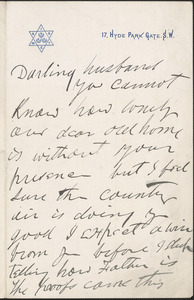 17, HYDE PARK GATE. S.W.
Darling husband
You cannot
know how lonely
our dear old home
is without your
presence but I feel
sure the country
air is doing
good I expect a
from before I
telling how Father is
The Proofs came this